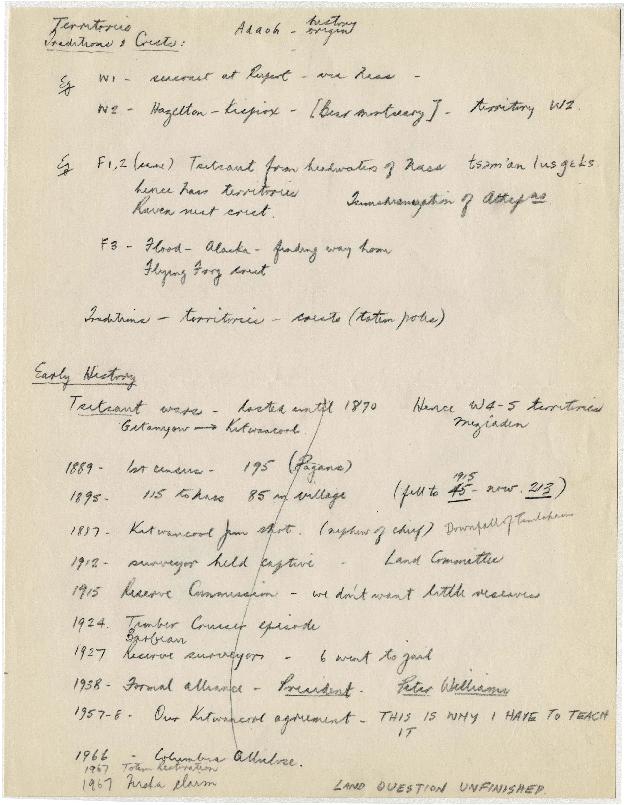 Territories
Traditions & Crests: Adaoh - history origin
Eg W1 - seacoast at Rupert - via Nass -
W2 - Hazelton - Kispiox - [Bear mortuary] - territory W2.
Eg F1,2 (cane) Tsetsaut from headwaters of Nass
hence Nass territories Tsimshianization of
Raven nest crest.
F3 - Flood - Alaska - finding way home
Flying Frog crest
Traditions - territories - crests (totem poles)
Early History
Tsetsaut wars - lasted until 1870 Hence W4-5 territories
Gitanyow → Kitwancool Meziaden
1889 - 1st census - 195 (Pagans)
1895 - 115 to Nass 85 in village (fell to 45 - now 213)
1915
1887 - Kitwancool Jim shot. (nephew of chief) Downfall of
1912 - surveyor held captive - Land Committee
1915 Reserve Commission - we don't want little reserves
1924. Timber Cruiser episode
1927 Reserve surveyor - 6 went to jail
1958 - Formal alliance - President - Peter Williams
1957-8 - Our Kitwancool agreement - THIS IS WHY I HAVE TO TEACH
IT
1966 - Columbia Cellulose.
1967 Totem Restoration
1967 Nishga claim LAND QUESTION UNFINISHED.